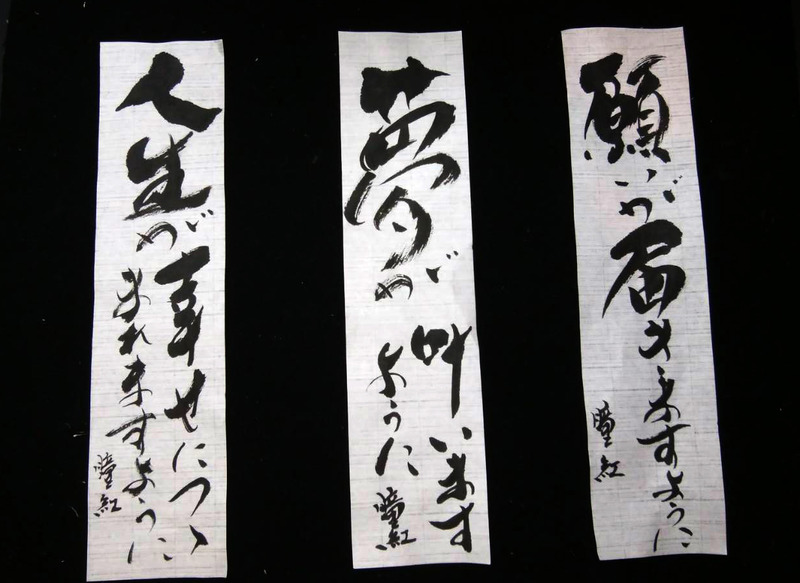 願いが届きますように
瞳紅
夢が
叶います
ように
瞳紅
人生が
幸せにつつ
まれますように
瞳紅